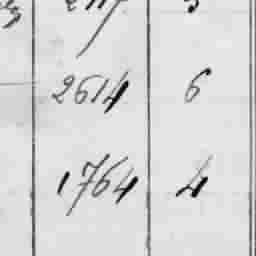 2614 6
1764 4